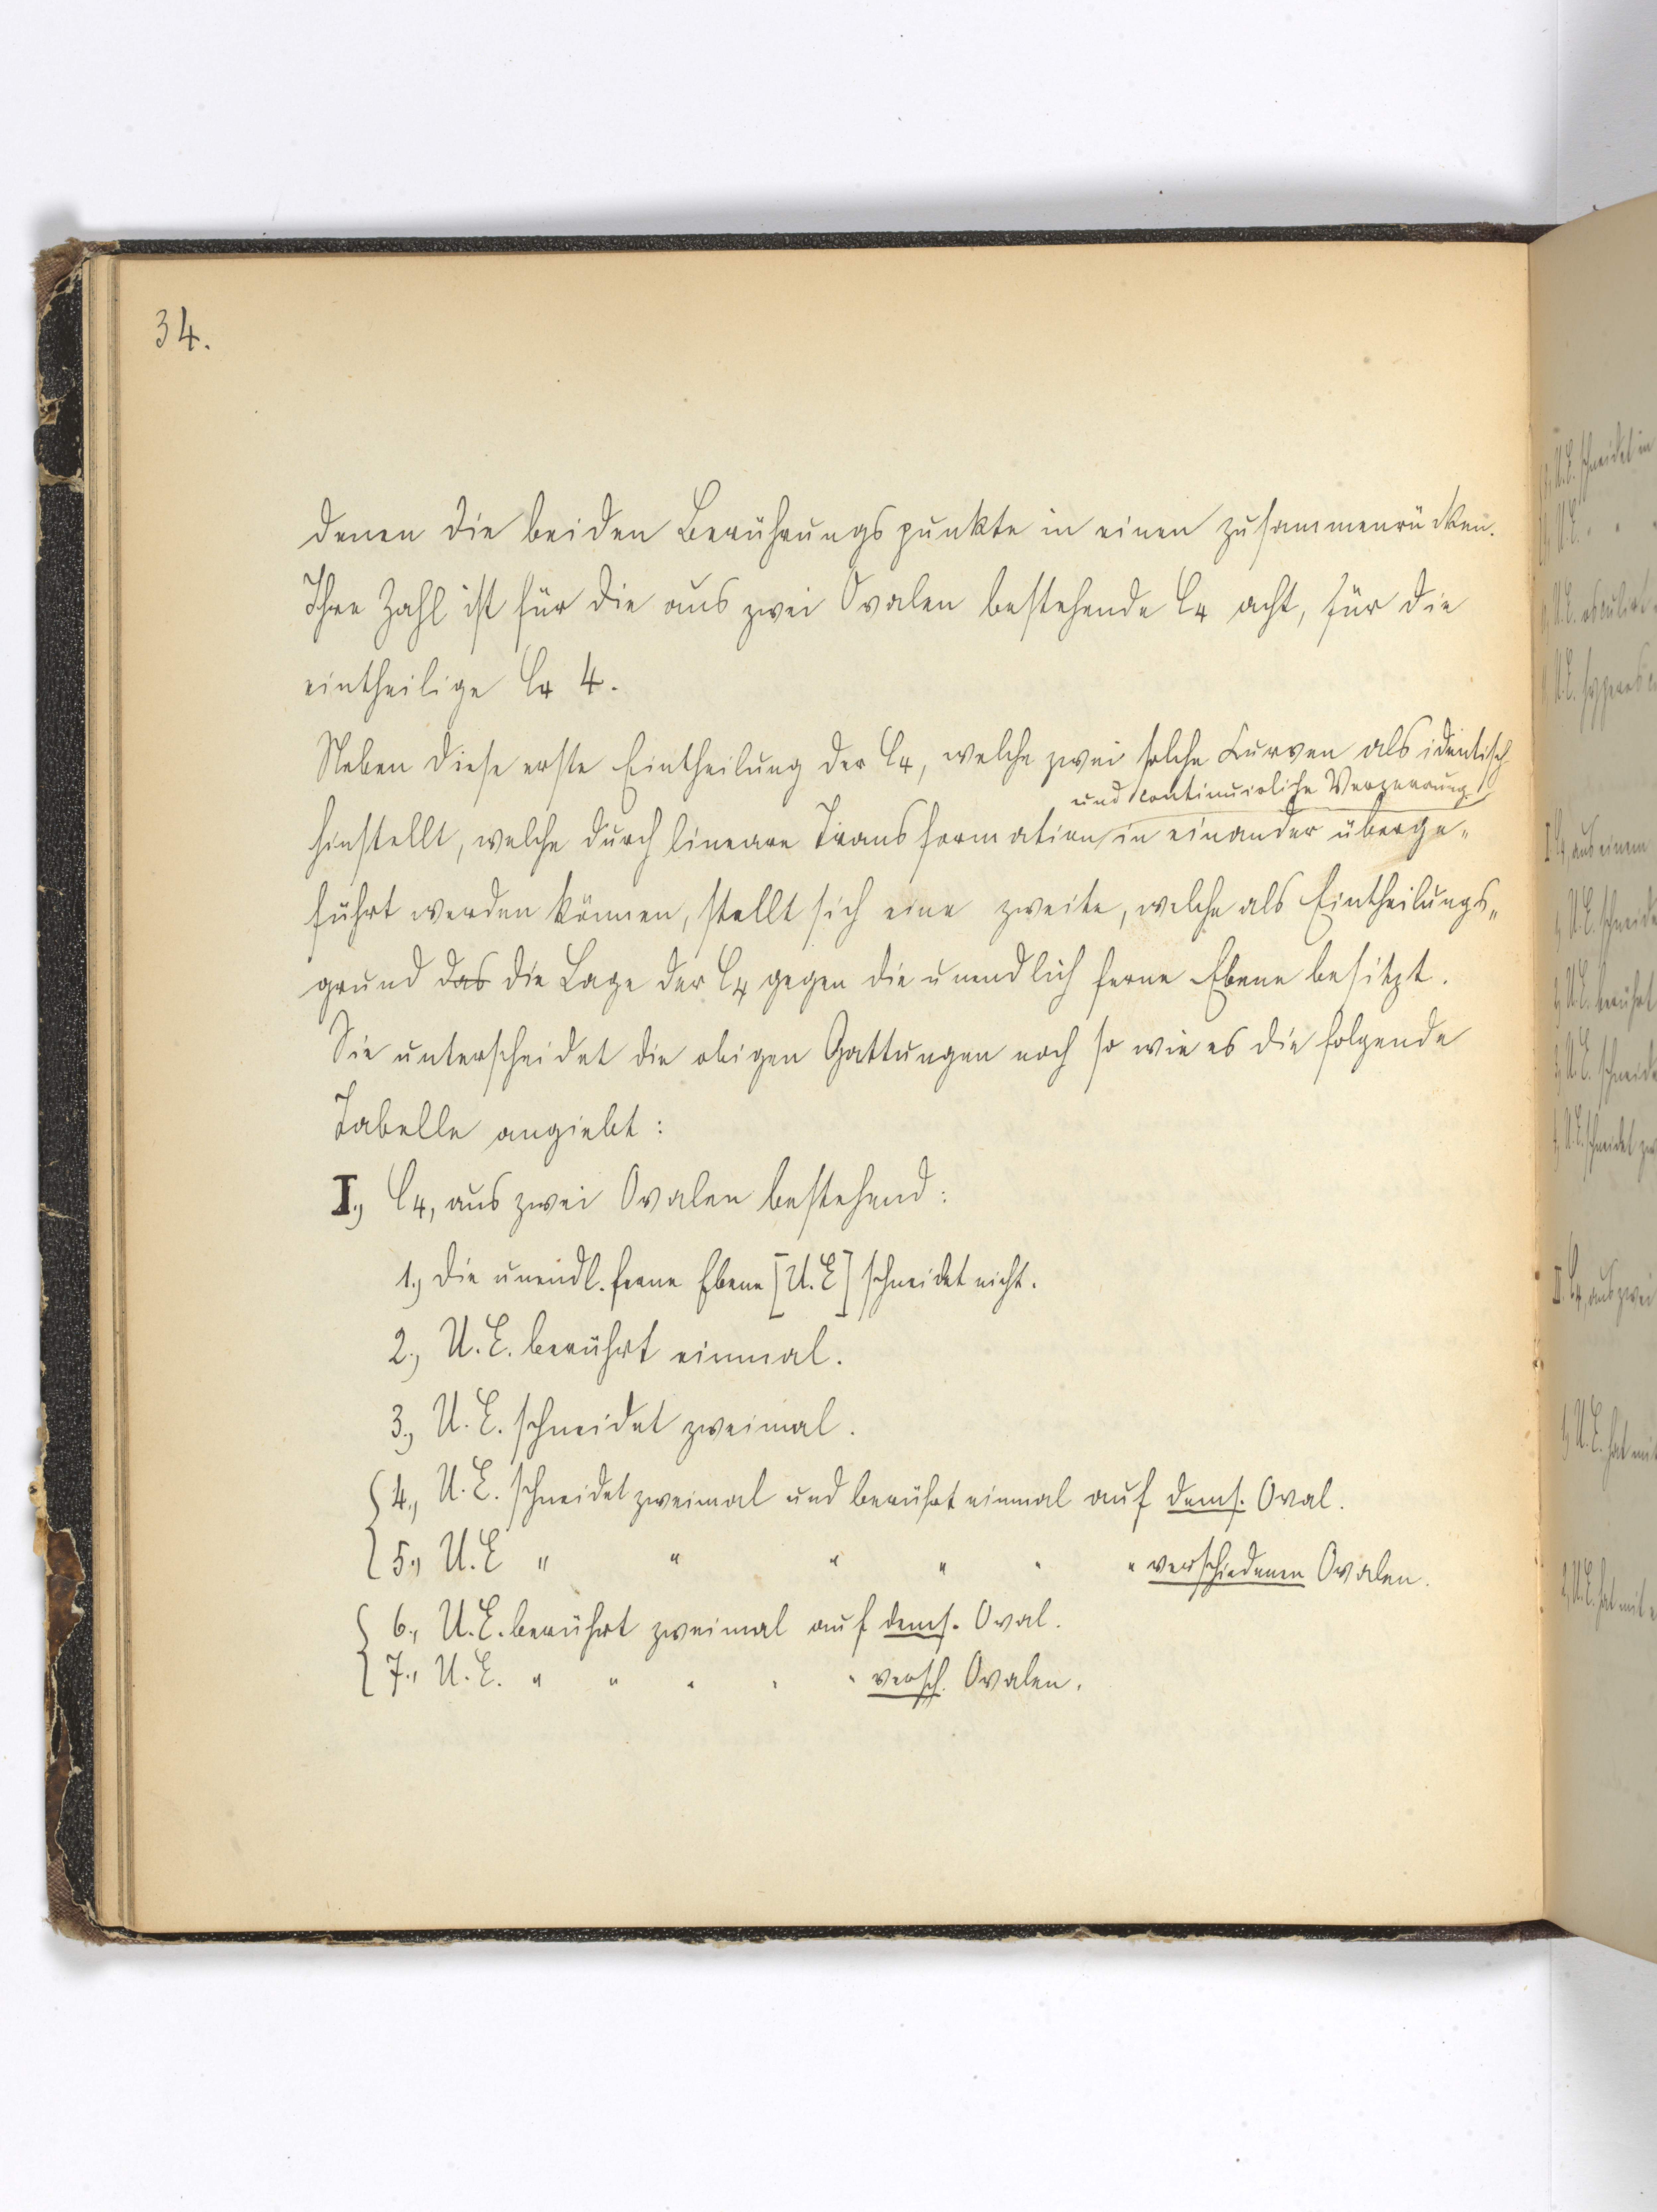 34.
denen die beiden Berührungspunkte in einen zusammenrücken.
Ihre Zahl ist für die aus zwei Ovalen bestehende C4 acht, für die
eintheilige C4 4.
Neben diese erste Eintheilung der C4, welche zwei solche Curven als identisch
und continuirliche Verzerrung
hinstellt, welche durch lineare Transformation in einander überge„
führt werden können, stellt sich eine zweite, welche als Eintheilungs„
grund das die Lage der C4 gegen die unendlich ferne Ebene besitzt.
Sie unterscheidet die obigen Gattungen noch so wie es die folgende
Tabelle angiebt:
I., C4, aus zwei Ovalen bestehend:
1., Die unendl. ferne Ebene [U.E] schneidet nicht.
2., U.E. berührt einmal.
3., U.E. schneidet zweimal.
4., U.E. schneidet zweimal und berührt einmal auf dems. Oval.
5., U.E " " " " " " verschiedenen Ovalen.
6., U.E. berührt zweimal auf dems. Oval.
7., U.E. " " " " " versch. Ovalen.
U.E. schneidet in
U.E. " "
U.E. osculirt
U.E.
I C4, aus einem
1, U.E. schneide
2, U.E. berührt
3, U.E. schneide
4, U.E. schneidet zw
II. C4, aus zwei
1, U.E. hat mit
2, U.E. hat mit